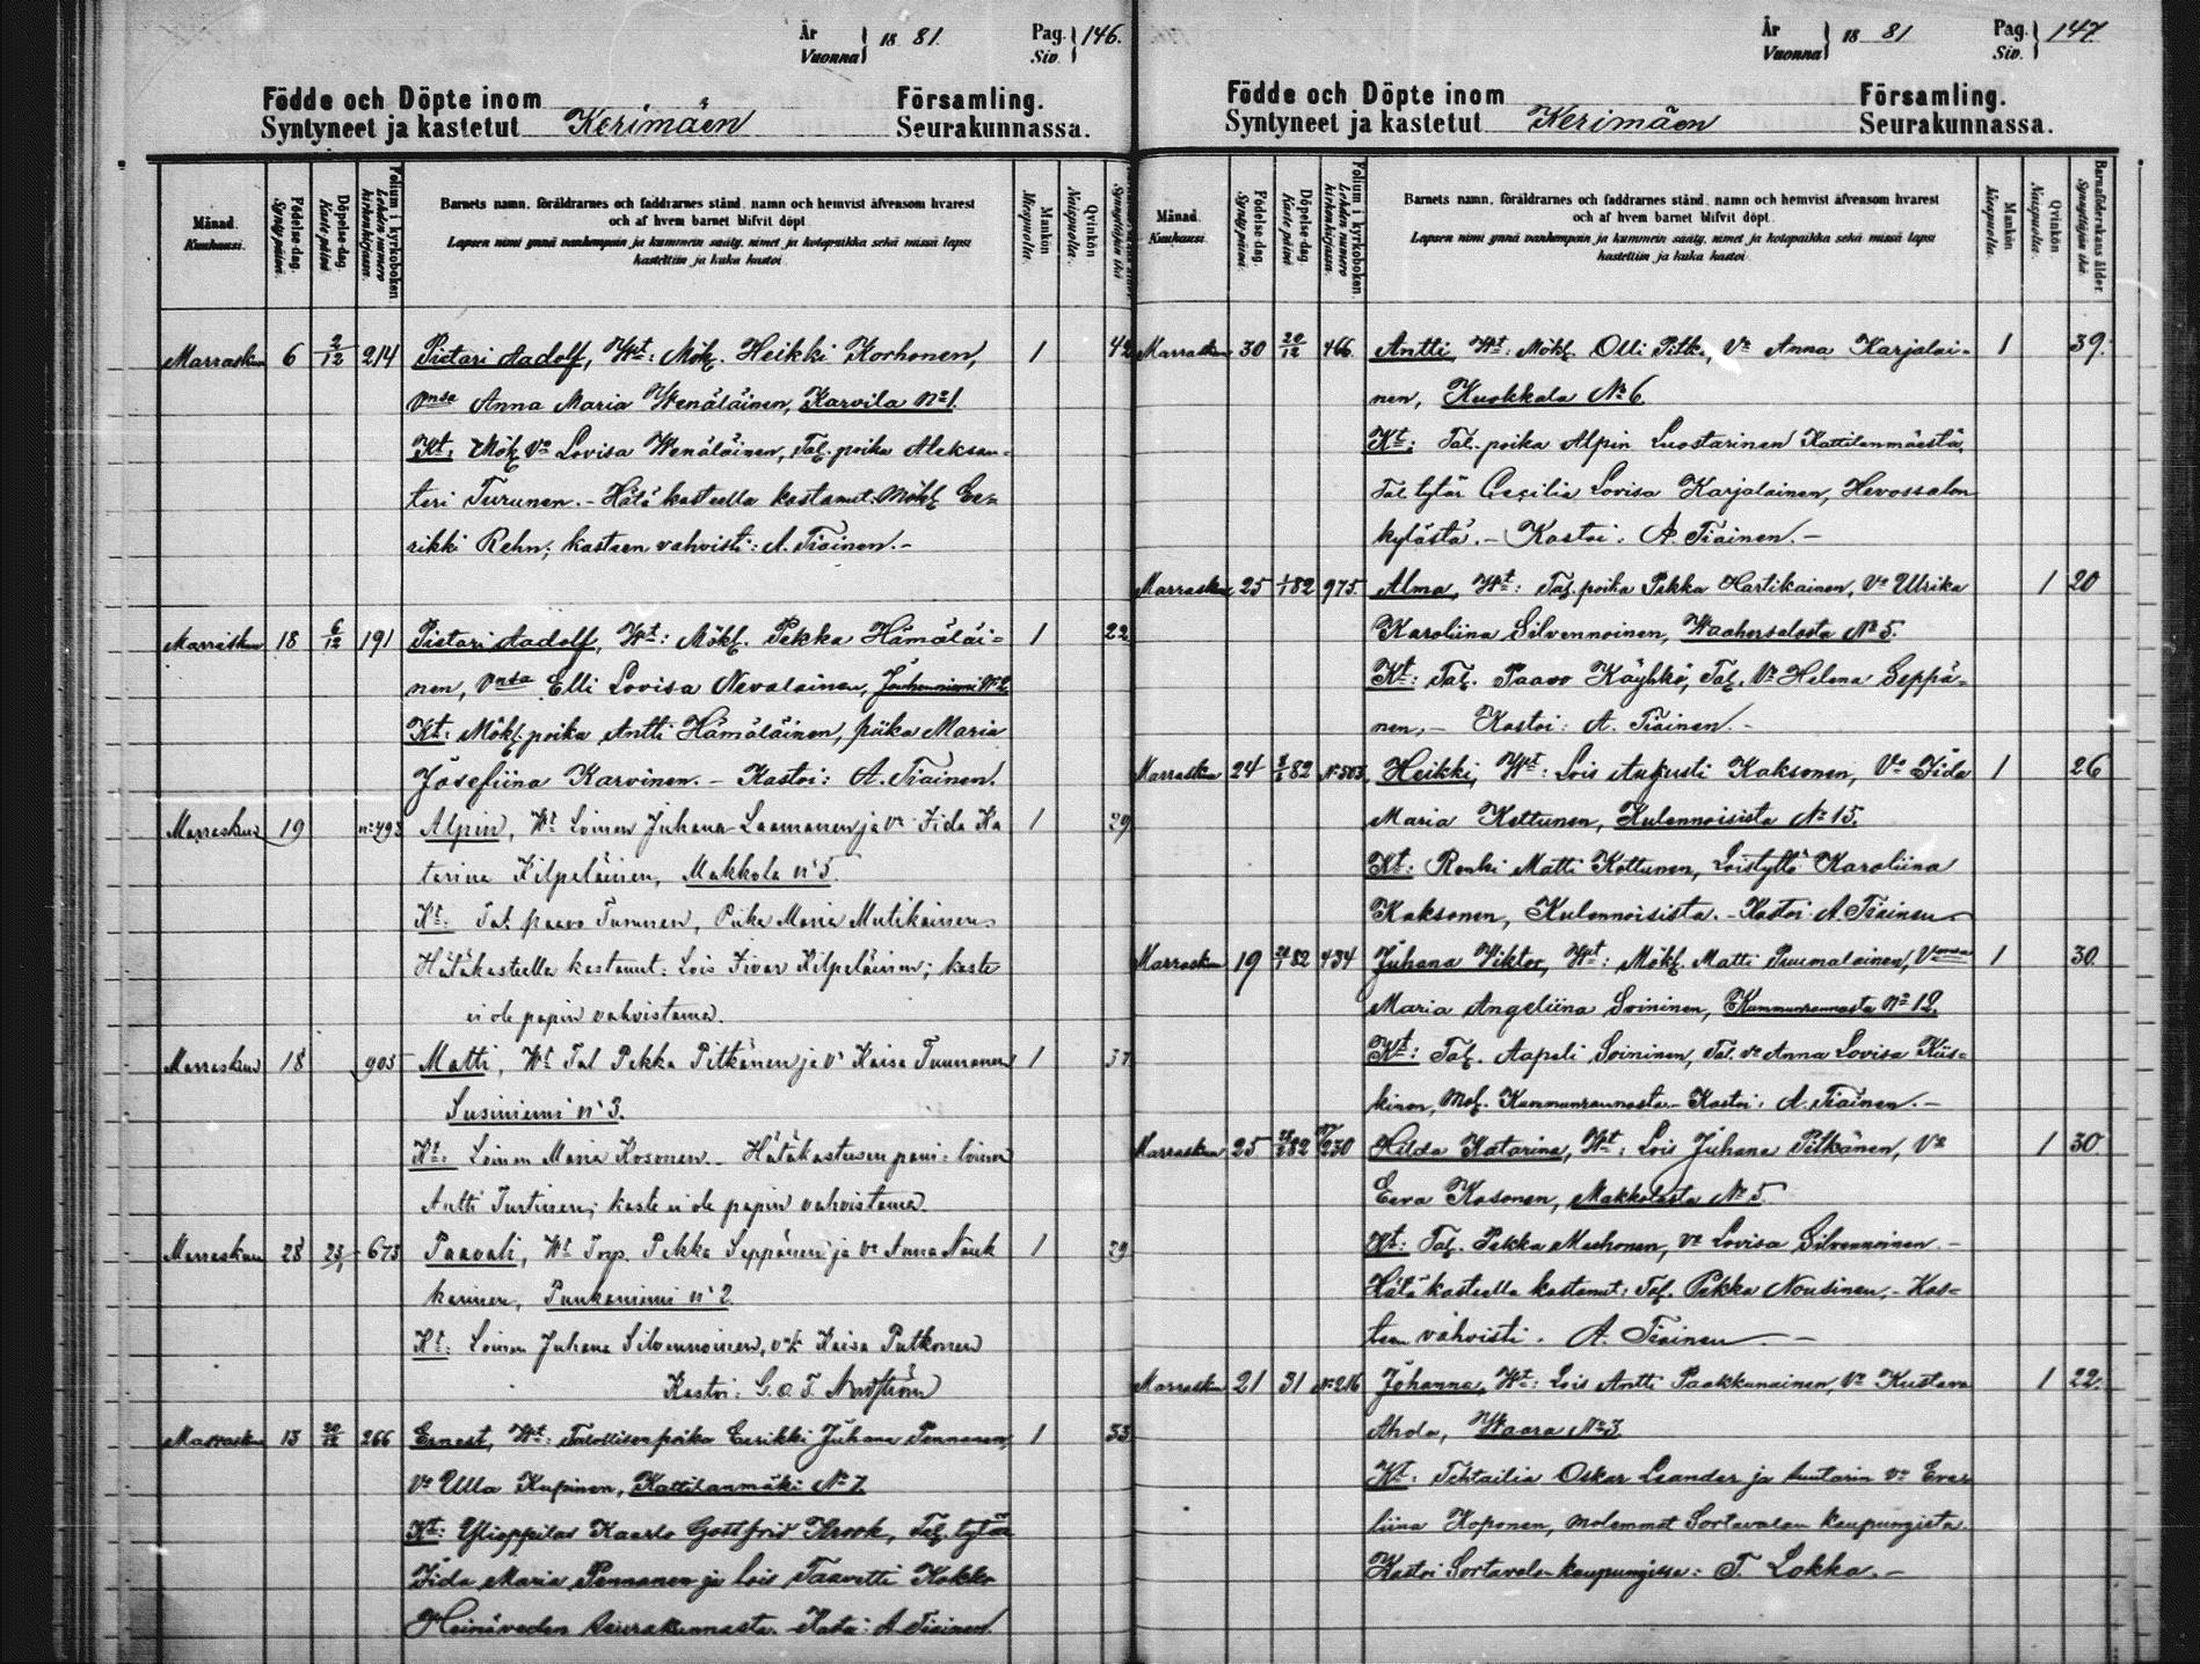 År Vuonna } 18 81. Pag. Siv. } 146.
Födde och Döpte inom Församling.
Syntyneet ja kastetut Kerimäen Seurakunnassa.
Månad. Kuukausi. Födelse-dag. Synty-päivä. Döpelse-dag. Kaste-päivä Folium i kyrkoboken Lehden numero kirkonkirjassa. Barnets namn, föräldrarnes och faddrarnes stånd, namn och hemvist äfvensom hvarest och af hvem barnet blifvit döpt. Mankön Miespuolia. Qvinkön Naispuolia.
Lapsen nimi ynnä vanhempain ja kummein sääty, nimet ja kotopaikka sekä missä lapsi kastettiin ja kuka kastoi
Marraskuu 6 2/12 214 Pietari Aadolf, Wt: Mökl. Heikki Korhonen, 1 42
vnsa Anna Maria Wenäläinen, Karvila No 1.
Kt: Mökl Vo Lovisa Wenäläinen, Tal. poika Aleksan-
teri Turunen. - Hätäkasteella kastanut: Mökl Ee-
rikki Rehn; kasteen vahvisti: A. Tiainen. -
Marraskuu 18 6/12 191 Pietari Aadolf, Wt: Mökl. Pekka Hämäläi- 1 22
nen, vnsa Elli Lovisa Nevalainen, Jouhenniemi No 2.
Kt: Mökl. poika Antti Hämäläinen, piika Maria
Josefiina Karvinen. - Kastoi: A. Tiainen.
Marraskuu 19 No 493 Alpin, Wt Loinen Juhana Laamanen ja vo Fida Ka 1 29
tarina Kilpeläinen, Makkola No 5.
Kt: Tal. Paavo Turunen, Piika Maria Mutikainen.
Hätäkasteella kastanut: Lois Iivar Kilpeläinen; kaste
ei ole papin vahvistama.
Marraskuu 18 905 Matti, Wt Tal Pekka Pitkänen ja vo Kaisa Tuunanen 1 37
Susiniemi No 3.
Kt: Loinen Maria Kosonen. Hätäkasteesen pani: loinen
Antti Turtinen; kaste ei ole papin vahvistama.
Marraskuu 28 23/1 673 Paavali, Wt Torp. Pekka Seppänen ja vo Anna Nauk 1 29
karinen, Punkaniemi No 2.
Kt: Loinen Juhana Silvennoinen, Kaisa Putkonen
Kastoi: G. O. F. Nordström
Marraskuu 13 20/12 266 Ernest, Wt: Talollisen poika Eerikki Juhana Pennanen, 1 33
Vo Ulla Kupinen, Kattilanmäki No 7
Kt: Ylioppilas Kaarlo Gottfrid Krook, Tal. tytär
Fida Maria Pennanen ja lois Taavetti Kokko
Heinäveden seurakunnasta. - Kastoi: A. Tiainen.
År Vuonna } 18 81 Pag. Siv. } 147.
Födde och Döpte inom Församling.
Syntyneet ja kastetut Kerimäen Seurakunnassa.
Månad. Kuukausi Födelse-dag. Synty-päivä. Döpelse-dag Kaste-päivä Folium i kyrkoboken Lehden numero kirkonkirjassa. Barnets namn, föräldrarnes och faddrarnes stånd, namn och hemvist äfvensom hvarest och af hvem barnet blifvit döpt. Mankön Miespuolia. Qvinkön Naispuolia. Barnaföderskans ålder. Synnyttäjän ikä.
Lapsen nimi ynnä vanhempain ja kummein sääty, nimet ja kotopaikka sekä missä lapsi kastettiin ja kuka kastoi
Marraskuu 30 20/12 466. Antti, Wt: Mökl. Olli Pitk., Vo Anna Karjalai- 1 39.
nen, Kuokkala No 6.
Kt: Tal. poika Alpin Luostarinen Kattilanmäestä,
Tal tytär Cecilia Lovisa Karjalainen, Hevossalon
kylästä. - Kastoi: A. Tiainen. -
Marraskuu 25 1/1 82 975. Alma, Wt: Tal. poika Pekka Hartikainen, Vo Ulrika 1 20
Karoliina Silvennoinen, Waahersalosta No 5.
Kt: Tal. Paavo Käyhkö, Tal. Vo Helena Seppä-
nen, - Kastoi: A. Tiainen. -
Marraskuu 24 82 No 503. Heikki, Wt: Lois Aukusti Kaksonen, Vo Fida 1 26
Maria Kettunen, Kulennoisista No 15.
Kt: Renki Matti Kettunen, Loistyttö Karoliina
Kaksonen, Kulennoisista. - Kastoi A. Tiainen
Marraskuu 19 82 434 Juhana Viktor, Wt: Mökl. Matti Puumalainen, Vnsa 1 30.
Maria Angeliina Soininen, Kummunrannasta No 12.
Kt: Tal. Aapeli Soininen, Tal. vo Anna Lovisa Kiis-
kinen, Mol. Kummunrannasta - Kastoi: A. Tiainen. -
Marraskuu 25 82 230 Hilda Katarina, Wt: Lois Juhana Pitkänen, Vo 1 30.
Eeva Kosonen, Makkolasta No 5.
Kt: Tal. Pekka Muhonen, vo Lovisa Silvennoinen. -
Hätäkasteella kastanut: Tal. Pekka Nousinen, - Kas-
teen vahvisti. A. Tiainen -
Marraskuu 21 31 No 216 Johanna, Wt: Lois Antti Paakkunainen, Vo Kustava 1 22.
Ahda, Waara No 3
Kt: Tehtailia Oskar Leander ja vo Eve-
liina Koponen, molemmat Sortavalan kaupungista.
Kastoi Sortavalan kaupungissa: T. Lokka. -